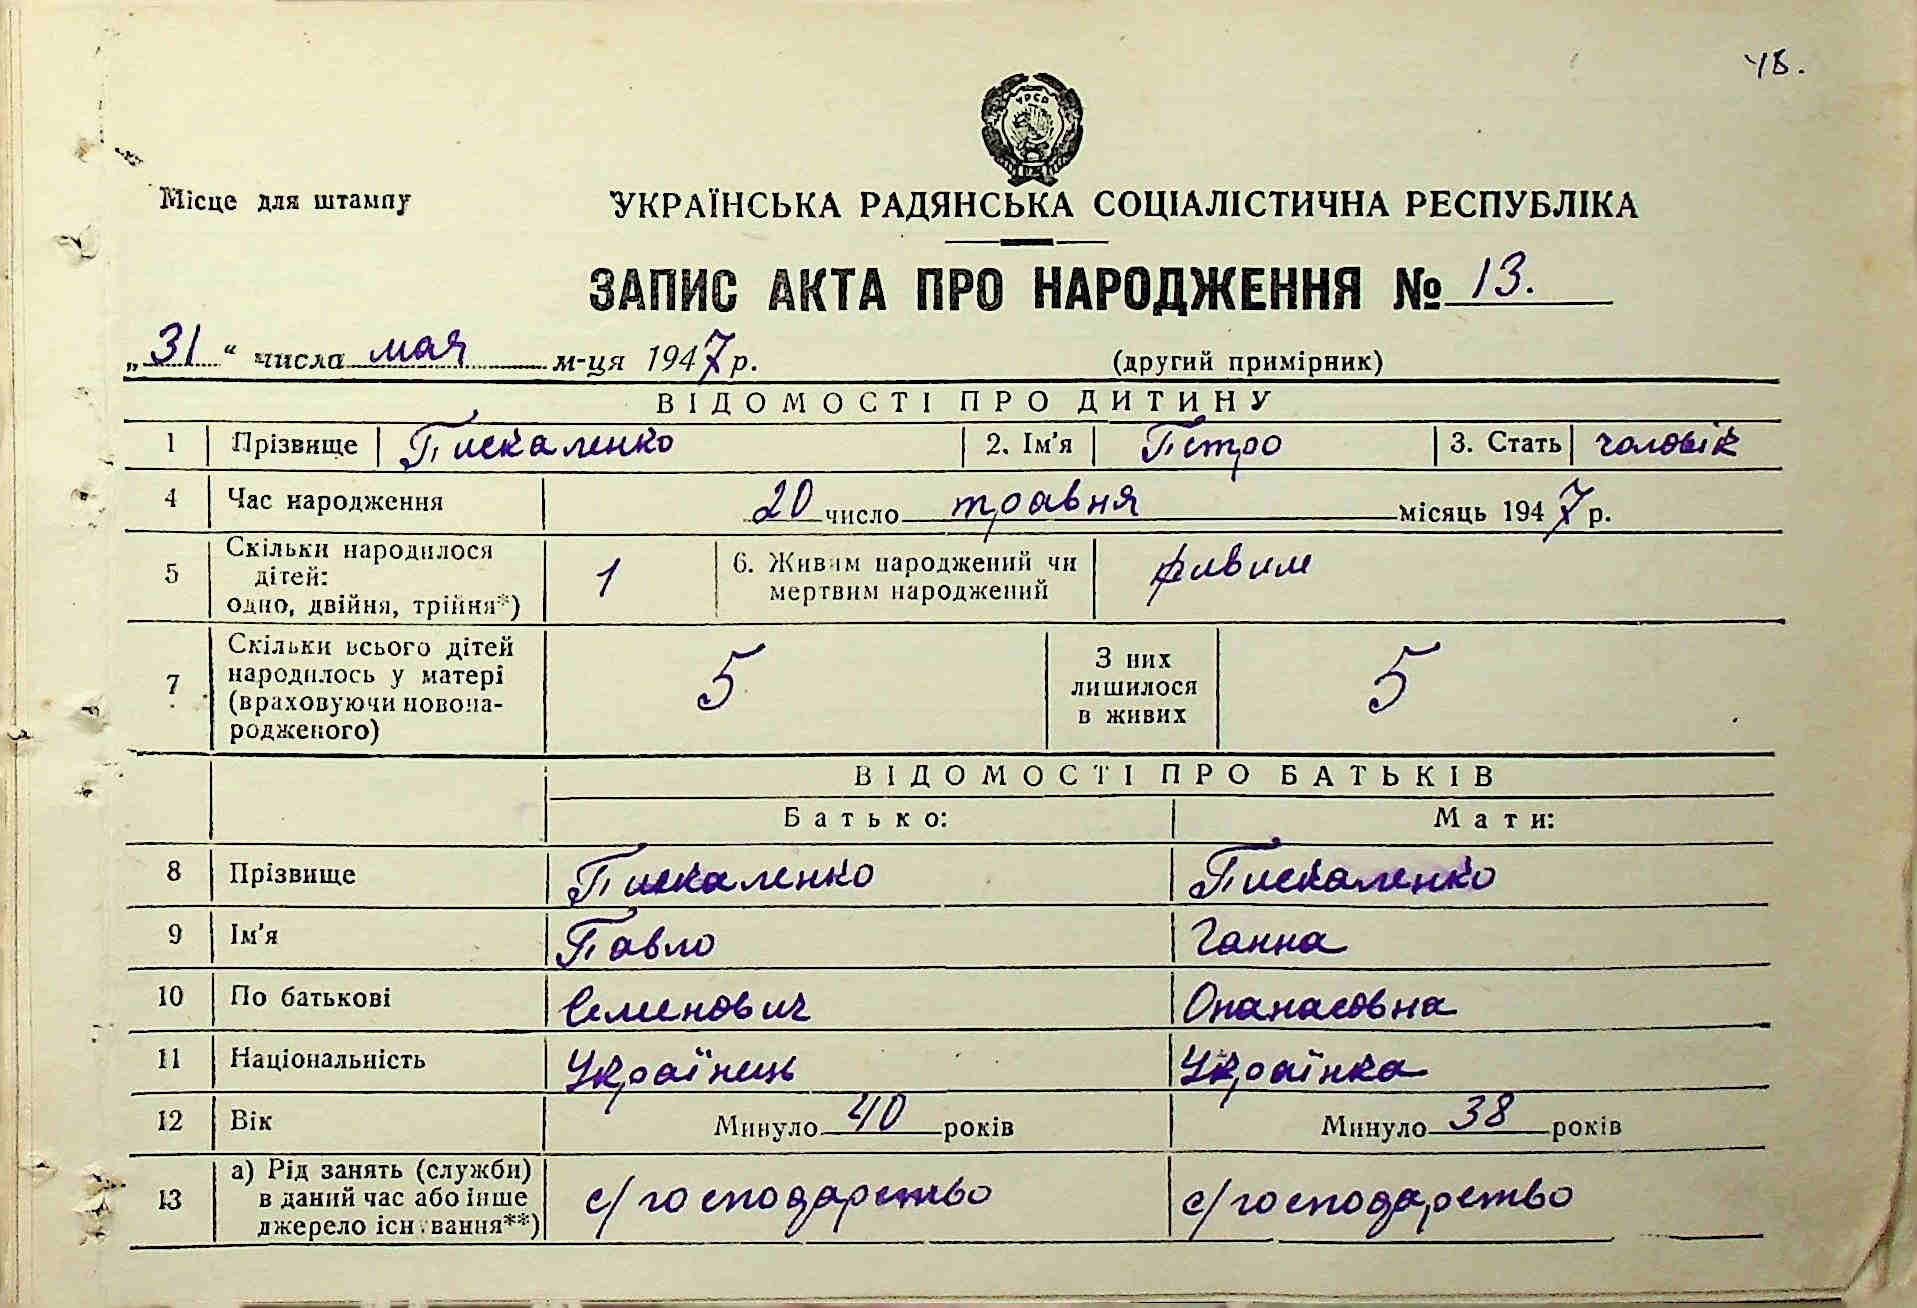 48.
УРСР
Місце для штампу
УКРАЇНСЬКА РАДЯНСЬКА СОЦІАЛІСТИЧНА РЕСПУБЛІКА
ЗАПИС АКТА ПРО НАРОДЖЕННЯ № 13.
„31“ числа мая м-ця 1947 р. (другий примірник)
ВІДОМОСТІ ПРО ДИТИНУ
1 Прізвище Пискаленко 2. Ім'я Петро 3. Стать чоловік
4 Час народження 20 число травня місяць 1947 р.
5 Скільки народилося дітей: одно, двійня, трійня*) 1 6. Живим народжений чи мертвим народжений живим
7 Скільки всього дітей народилось у матері (враховуючи новонародженого) 5 З них лишилося в живих 5
ВІДОМОСТІ ПРО БАТЬКІВ
Батько: Мати:
8 Прізвище Пискаленко Пискаленко
9 Ім'я Павло Ганна
10 По батькові Семенович Опанасовна
11 Національність Українець Українка
12 Вік Минуло 40 років Минуло 38 років
13 а) Рід занять (служби) в даний час або інше джерело існування**) с/господарство с/господарство